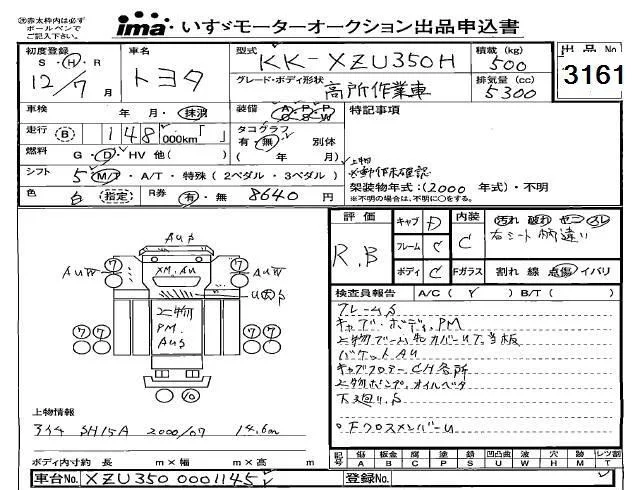 ※赤太枠内は必ず
ボールペンで
ご記入下さい。
ima いすゞモーターオークション出品申込書
初度登録 S・H・R 12/7月
車名 トヨタ
型式 KK-XZU350H
積載(kg) 500
グレード・ボディ形状 高所作業車
排気量(cc) 5300
出品No 3161
車検 年 月・抹消
装備 A C P S P W
特記事項
走行 B 148,000km「 」
タコグラフ 有・無 別体
( 年 月)
燃料 G・D・HV 他( )
シフト 5 M/T・A/T・特殊(2ペダル・3ペダル)
上物
※動作未確認
架装物年式:(2000 年式)・不明
※不明の場合は、不明に○をする。
色 白 指定 R券 有・無 8640 円
評価 R.B
キャブ D
フレーム C
ボディ C
内装 C
汚れ 破れ コゲ スレ
右シート柄違い
Fガラス 割れ 線 点傷 イバリ
検査員報告 A/C( ) B/T( )
フレームS
キャブ・ボディ、PM
バケットAU
キャブフロアーCH各所
上物ポンプ、オイルベタ
下廻り、S
下クロスメンバーU
AUS
AUW 7 7 AUW
XM.AU
上物
PM.
AUS
7 7 7 7
上物情報
アイチ SH15A 2000/07 14.6m
ボディ内寸約 長 m×幅 m×高 m
記号 傷 A 板金 B 腐 C 塗 P 錆 S 凹凸曲 U 波 W 穴 H 跡 M レツ割 T
車台No. XZU350 0001145
登録No.